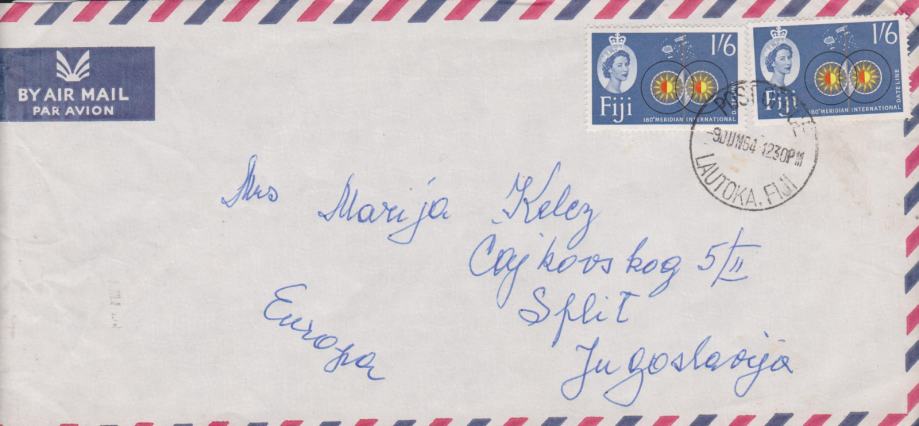 BY AIR MAIL
PAR AVION
1/6
Fiji
180° MERIDIAN INTERNATIONAL
DATE LINE
1/6
Fiji
180° MERIDIAN INTERNATIONAL
DATE LINE
POST OFFICE
-9JUN64-1230PM
LAUTOKA. FIJI
Mrs Marija Kelez
Čajkovskog 5/II
Split
Jugoslavija
Europa